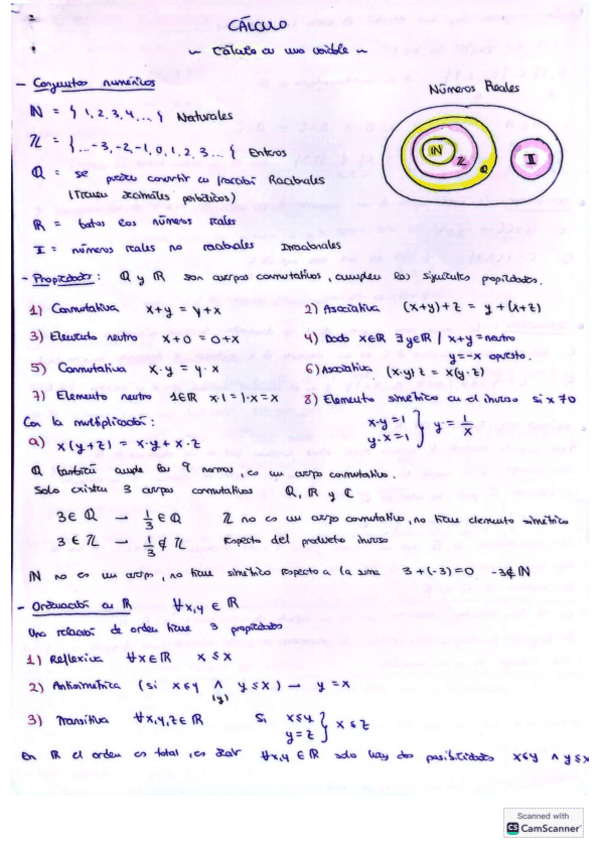 CÁLCULO
~ Cálculo en una variable ~
- Conjuntos numéricos
Números Reales
ℕ = { 1, 2, 3, 4, ... } Naturales
ℤ = { ... -3, -2, -1, 0, 1, 2, 3, ... } Enteros
ℚ = se puede convertir en fracción Racionales
(Tienen decimales periódicos)
ℝ = todos los números reales
I = números reales no racionales Irracionales
ℕ ℤ ℚ I
- Propiedades: ℚ y ℝ son cuerpos conmutativos, cumplen las siguientes propiedades.
1) Conmutativa x+y = y+x
2) Asociativa (x+y)+z = y+(x+z)
3) Elemento neutro x+0 = 0+x
4) Dado x∈ℝ ∃y∈ℝ / x+y = neutro
y=-x opuesto.
5) Conmutativa x·y = y·x
6) Asociativa (x·y) z = x(y·z)
7) Elemento neutro 1∈ℝ x·1 = 1·x = x
8) Elemento simétrico en el inverso si x≠0
Con la multiplicación:
x·y=1
y·x=1 } y = 1/x
a) x(y+z) = x·y + x·z
ℚ también cumple las 9 normas, es un cuerpo conmutativo.
Solo existen 3 cuerpos conmutativos ℚ, ℝ y ℂ
3∈ℚ → 1/3 ∈ ℚ ℤ no es un cuerpo conmutativo, no tiene elemento simétrico
3∈ℤ → 1/3 ∉ ℤ respecto del producto inverso
ℕ no es un cuerpo, no tiene simétrico respecto a la suma 3+(-3)=0 -3∉ℕ
- Ordenación en ℝ ∀x,y ∈ ℝ
Una relación de orden tiene 3 propiedades
1) Reflexiva ∀x∈ℝ x≤x
2) Antisimétrica (si x≤y ∧ y≤x) → y=x
(y)
3) Transitiva ∀x,y,z∈ℝ Si x≤y
y=z } x≤z
En ℝ el orden es total, es decir ∀x,y ∈ ℝ solo hay dos posibilidades x≤y ∧ y≤x
Scanned with
CS CamScanner